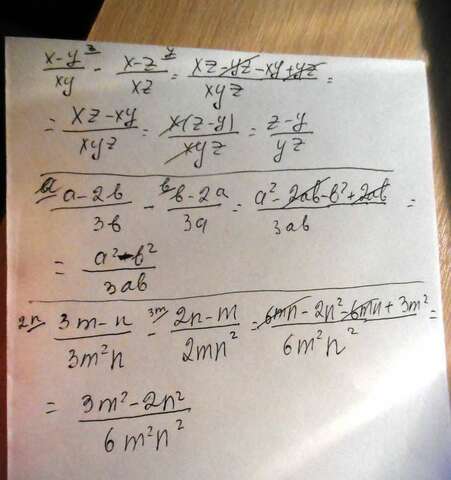 (x-y)/(xy) ^z - (x-z)/(xz) ^y = (xz-yz-xy+yz)/(xyz) =
= (xz-xy)/(xyz) = (x(z-y))/(xyz) = (z-y)/(yz)
^a (a-2b)/(3b) - ^b (b-2a)/(3a) = (a²-2ab-b²+2ab)/(3ab) =
= (a²-b²)/(3ab)
^2n (3m-n)/(3m²n) - ^3m (2n-m)/(2mn²) = (6mn-2n²-6mn+3m²)/(6m²n²) =
= (3m²-2n²)/(6m²n²)